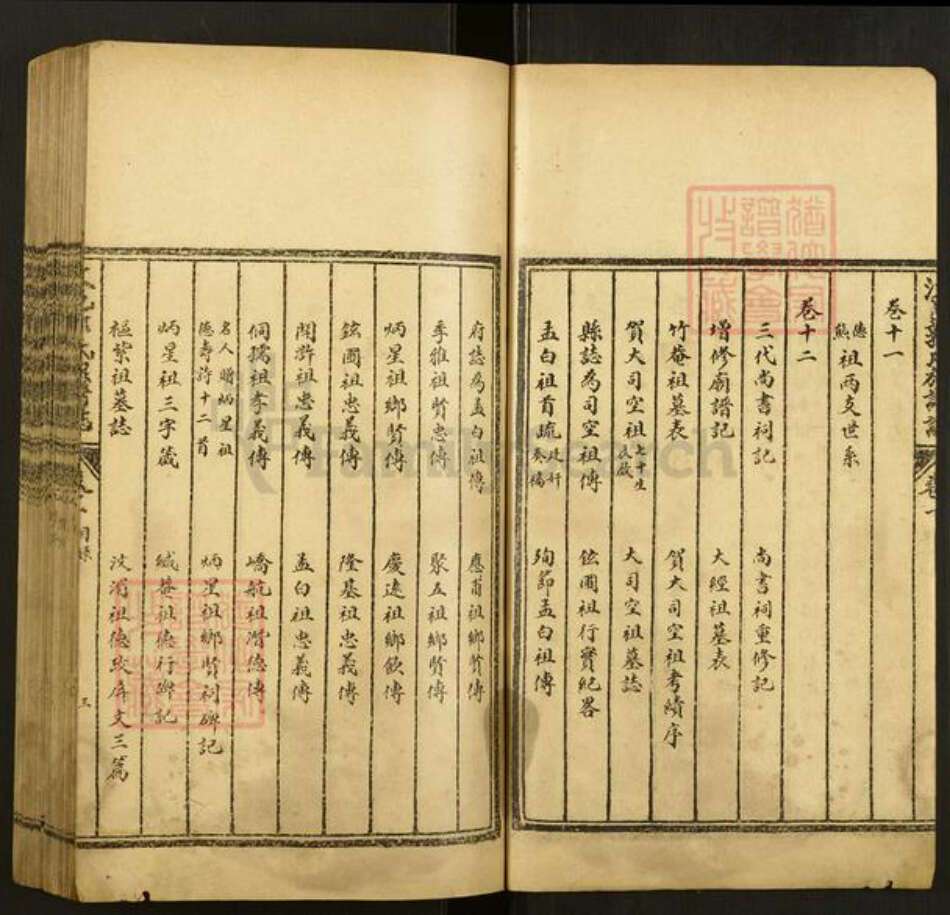 卷十一
德熊祖兩支世系
卷十二
三代尚書祠記 尚書祠重修記
增修廟譜記 大經祖墓表
竹菴祖墓表 賀大司空祖考績序
賀大司空祖七十生辰啟 大司空祖墓誌
縣誌為司空祖傳 伭圃祖行實紀畧
孟白祖首疏 殉節孟白祖傳
府誌為孟白祖傳 應甫祖鄉賢傳
季雅祖賢忠傳 聚五祖鄉賢傳
炳星祖鄉賢傳 慶遠祖鄉飲傳
鉉圃祖忠義傳 隆基祖忠義傳
開許祖忠義傳 孟白祖忠義傳
侗孺祖孝義傳 嶠航祖潛德傳
名人贈炳星祖德壽詩十二首 炳星祖鄉賢祠碑記
炳星祖三字箴 緘菴祖德行碑記
樞紫祖墓誌 汶湄祖德政屏文三篇
三